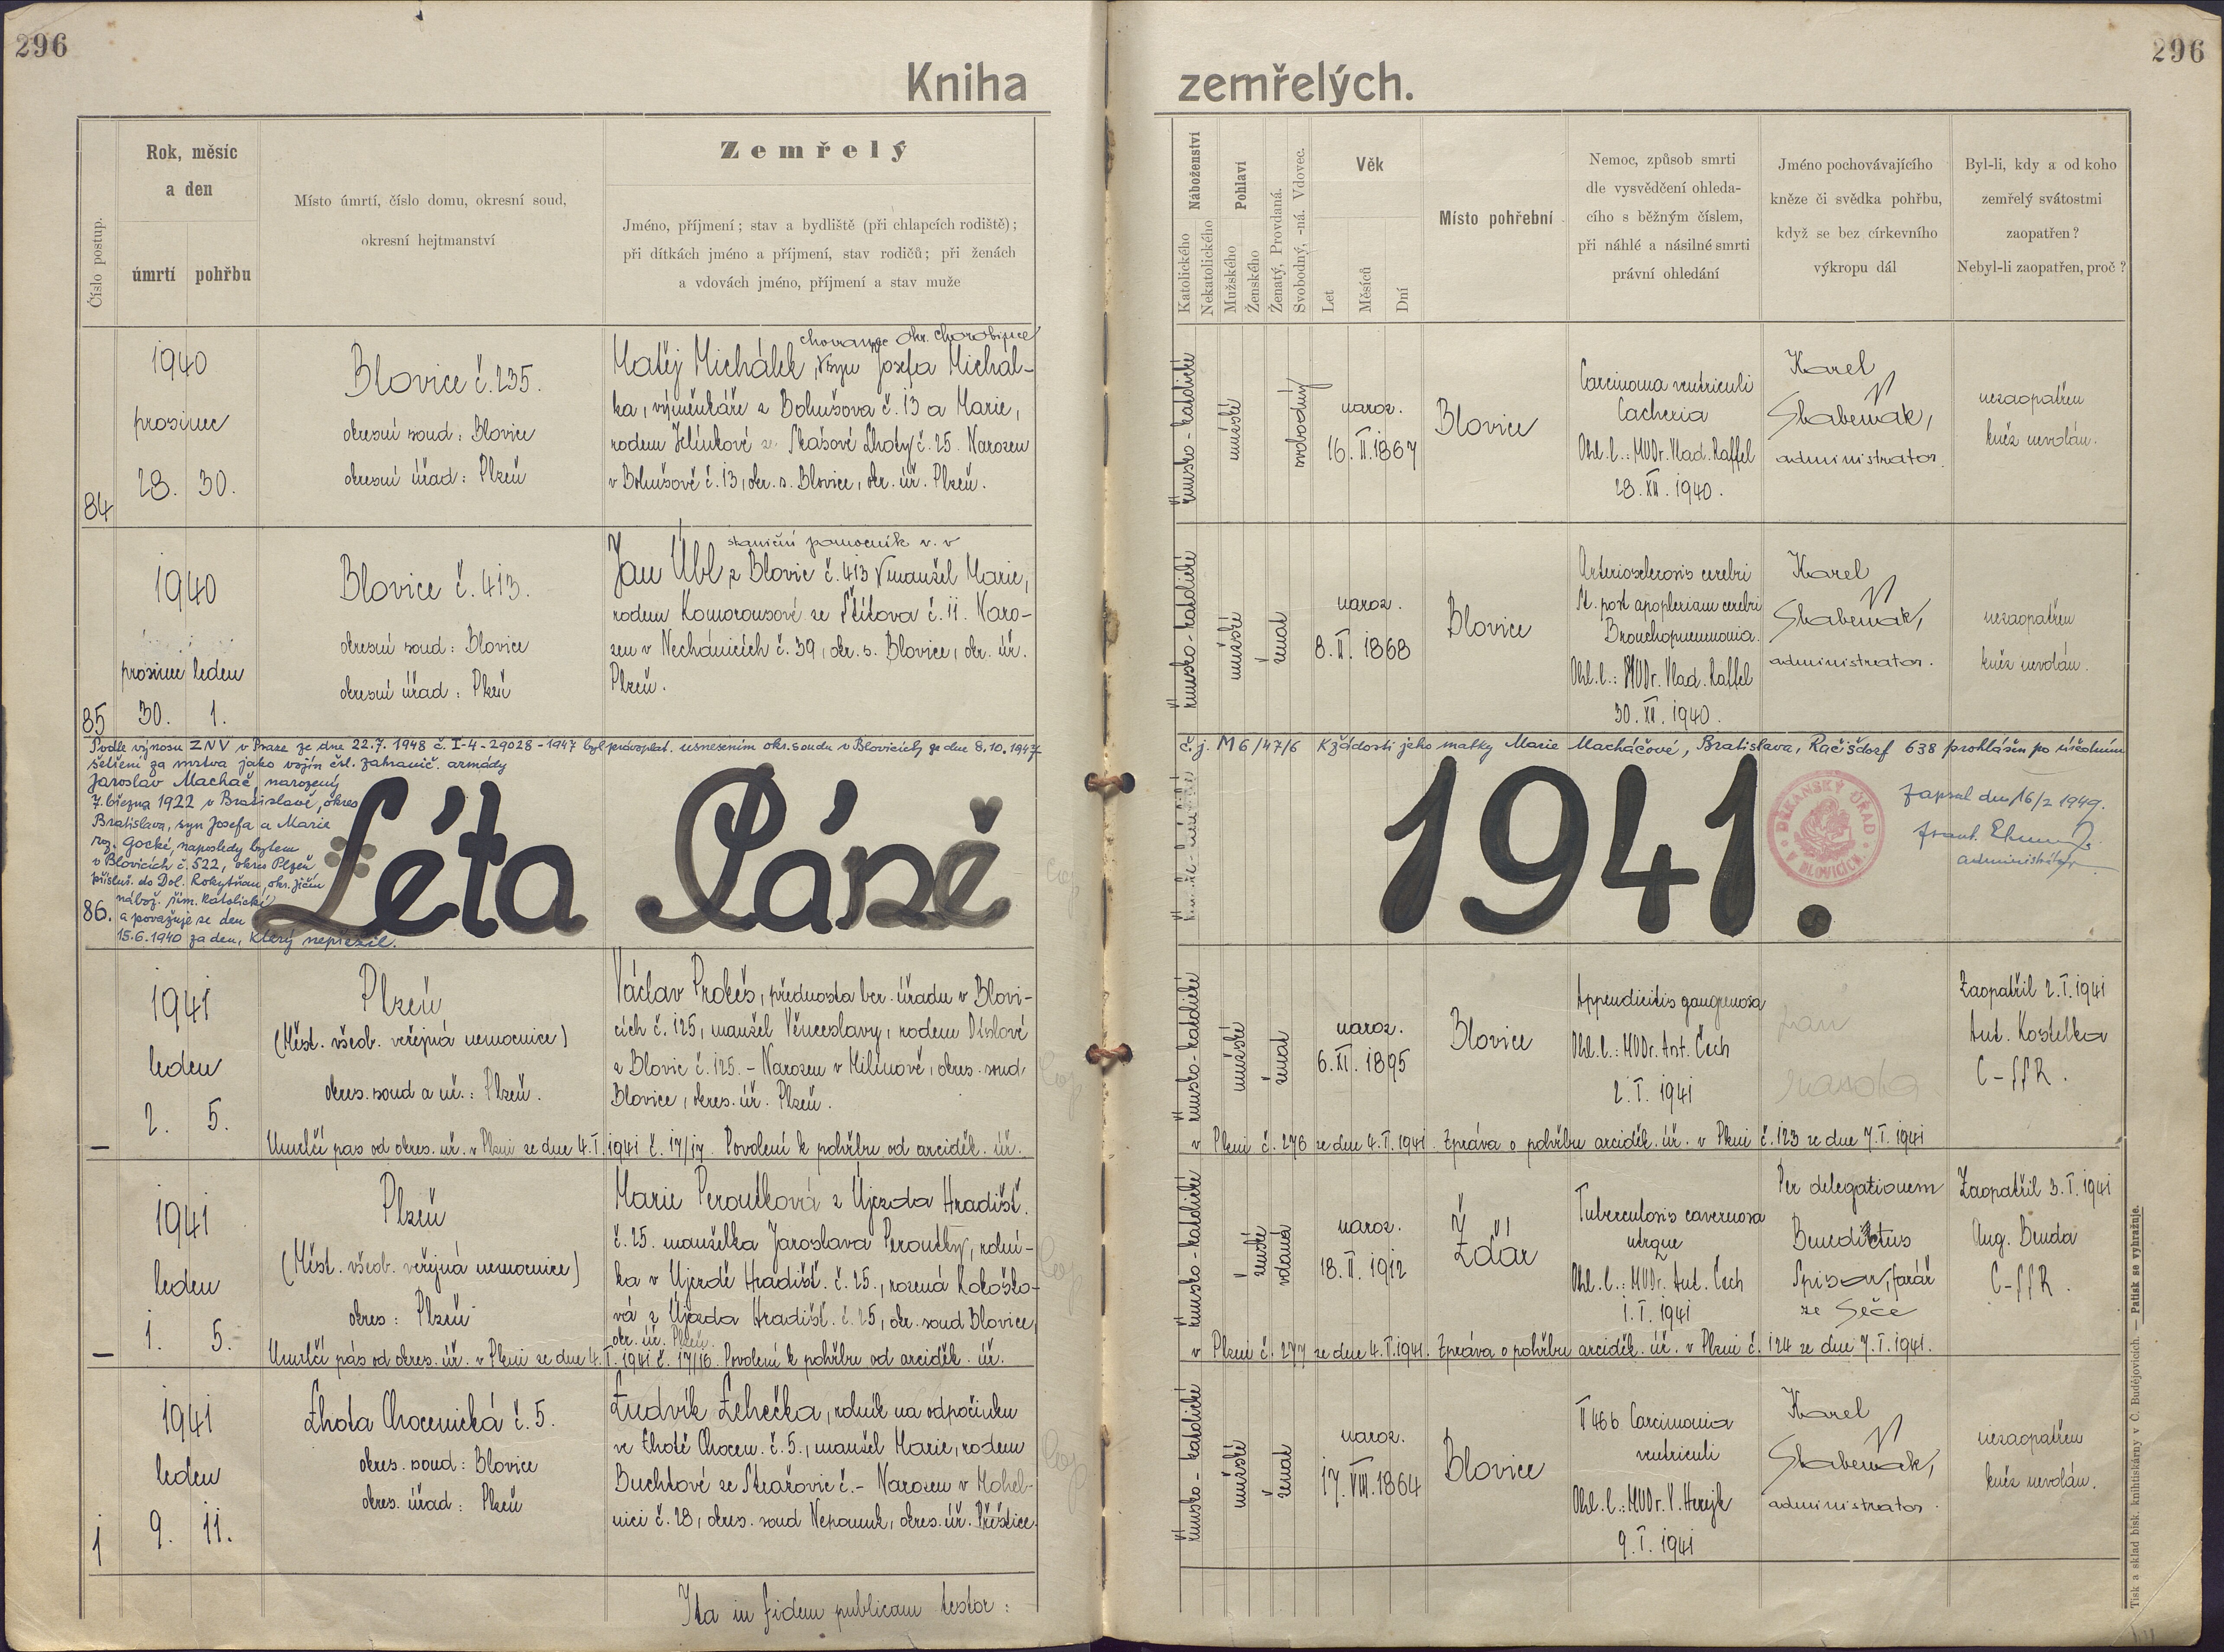 296
296
Kniha zemřelých.
Číslo postup.
Rok, měsíc
a den
úmrtí
pohřbu
Místo úmrtí, číslo domu, okresní soud,
okresní hejtmanství
Zemřelý
Jméno, příjmení; stav a bydliště (při chlapcích rodiště);
při dítkách jméno a příjmení, stav rodičů; při ženách
a vdovách jméno, příjmení a stav muže
Náboženství
Katolického
Nekatolického
Pohlaví
Mužského
Ženského
Ženatý, Provdaná.
Svobodný, -ná. Vdovec.
Věk
Let
Měsíců
Dní
Místo pohřební
Nemoc, způsob smrti
dle vysvědčení ohleda-
cího s běžným číslem,
při náhlé a násilné smrti
právní ohledání
Jméno pochovávajícího
kněze či svědka pohřbu,
když se bez církevního
výkropu dál
Byl-li, kdy a od koho
zemřelý svátostmi
zaopatřen?
Nebyl-li zaopatřen, proč?
84
1940
prosinec
28. 30.
Blovice č. 235.
okresní soud: Blovice
okresní úřad: Plzeň
chovanec okr. chorobince
Matěj Michálek, syn Josefa Michál-
ka, výměnkáře z Bohušova č. 13 a Marie,
rodem Jelínkové ze Skašové Lhoty č. 25. Narozen
v Bohušově č. 13, okr. s. Blovice, okr. úř. Plzeň.
římsko-katolické
mužské
svobodný
naroz.
16. II. 1867
Blovice
Carcinoma ventriculi
Cachexia
Ohl. l.: MUDr. Vlad. Raffel
28. XII. 1940.
Karel
administrator.
nezaopatřen
kněz nevolán.
85
1940
prosinec leden
30. 1.
Blovice č. 413.
okresní soud: Blovice
okresní úřad: Plzeň
staniční pomocník v. v
Jan Übl z Blovic č. 413 manžel Marie,
rodem Komorousové ze Štítova č. 11. Naro-
zen v Nechánicích č. 39, okr. s. Blovice, okr. úř.
Plzeň.
římsko-katolické
mužské
ženat
naroz.
8. II. 1868
Blovice
Arteriosclerosis cerebri
St. post apoplexiam cerebri
Bronchopneumonia.
Ohl. l.: MUDr. Vlad. Raffel
30. XII. 1940.
Karel
administrator.
nezaopatřen
kněz nevolán.
Podle výnosu ZNV v Praze ze dne 22.7. 1948 č. I-4-29028-1947 byl právoplat. usnesením okr. soudu v Blovicích ze dne 8.10.1947
č.j. M6/47/6 K žádosti jeho matky Marie Macháčové, Bratislava, Račišdorf 638 prohlášen po úředním
šetření za mrtva jako vojín čsl. zahranič. armády
Jaroslav Macháč, narozený
7. března 1922 v Bratislavě, okres
Bratislava, syn Josefa a Marie
roz. Gocké, naposledy bytem
v Blovicích č. 522, okres Plzeň
přísluš. do Dol. Rokytňan, okr. Jičín
nábož. řím. katolické
86. a považuje se den
15.6.1940 za den, který nepřežil.
Léta Páně 1941.
DĚKANSKÝ ÚŘAD
V BLOVICÍCH.
Zapsal dne 16/2 1949.
administrátor
1941
leden
2. 5.
Plzeň
(Měst. všeob. veřejná nemocnice)
okres. soud a úř.: Plzeň.
Václav Prokeš, přednosta ber. úřadu v Blovi-
cích č. 125, manžel Věnceslavy, rodem Díslové
z Blovic č. 125. – Narozen v Milínově, okres. soud
Blovice, okres. úř. Plzeň.
římsko-katolické
mužské
ženat
naroz.
6. XI. 1895
Blovice
Appendicitis gangrenosa
Ohl. l.: MUDr. Ant. Čech
2. I. 1941
Zaopatřil 2. I. 1941
Ant. Kostelka
C-SSR.
Umrlčí pas od okres. úř. v Plzni ze dne 4. I. 1941 č. 17/17. Povolení k pohřbu od arciděk. úř.
v Plzni č. 276 ze dne 4. I. 1941. Zpráva o pohřbu arciděk. úř. v Plzni č. 123 ze dne 7. I. 1941
1941
leden
1. 5.
Plzeň
(Měst. všeob. veřejná nemocnice)
okres: Plzeň
Marie Peroutková z Újezda Hradišť.
č. 25. manželka Jaroslava Peroutky, rolní-
ka v Újezdě Hradišť. č. 25, rozená Kokoško-
vá z Újezda Hradišť. č. 25, okr. soud Blovice,
okr. úř. Plzeň.
římsko-katolické
ženské
vdaná
naroz.
18. II. 1912
Žďár
Tuberculosis cavernosa
utrque
Ohl. l.: MUDr. Ant. Čech
1. I. 1941
Per delegationem
Benedictus
Spisar, farář
ze Seče
Zaopatřil 3. I. 1941
Aug. Benda
C-SSR.
Umrlčí pas od okres. úř. v Plzni ze dne 4. I. 1941 č. 17/16. Povolení k pohřbu od arciděk. úř.
v Plzni č. 277 ze dne 4. I. 1941. Zpráva o pohřbu arciděk. úř. v Plzni č. 124 ze dne 7. I. 1941.
1
1941
leden
9. 11.
Lhota Chocenická č. 5.
okres. soud: Blovice
okres. úřad: Plzeň
Ludvík Lehečka, rolník na odpočinku
ve Lhotě Chocen. č. 5., manžel Marie, rodem
Buchtové ze Střažovic č. – Narozen v Mohel-
nici č. 28, okres. soud Nepomuk, okres. úř. Přeštice.
římsko-katolické
mužské
ženat
naroz.
17. VIII. 1864
Blovice
II 466 Carcinomia
ventriculi
Ohl. l.: MUDr. V. Herejk
9. I. 1941
Karel
administrator.
nezaopatřen
kněz nevolán.
Ita in fidem publicam testor:
Tisk a sklad bisk. knihtiskárny v Č. Budějovicích. — Patisk se vyhražuje.